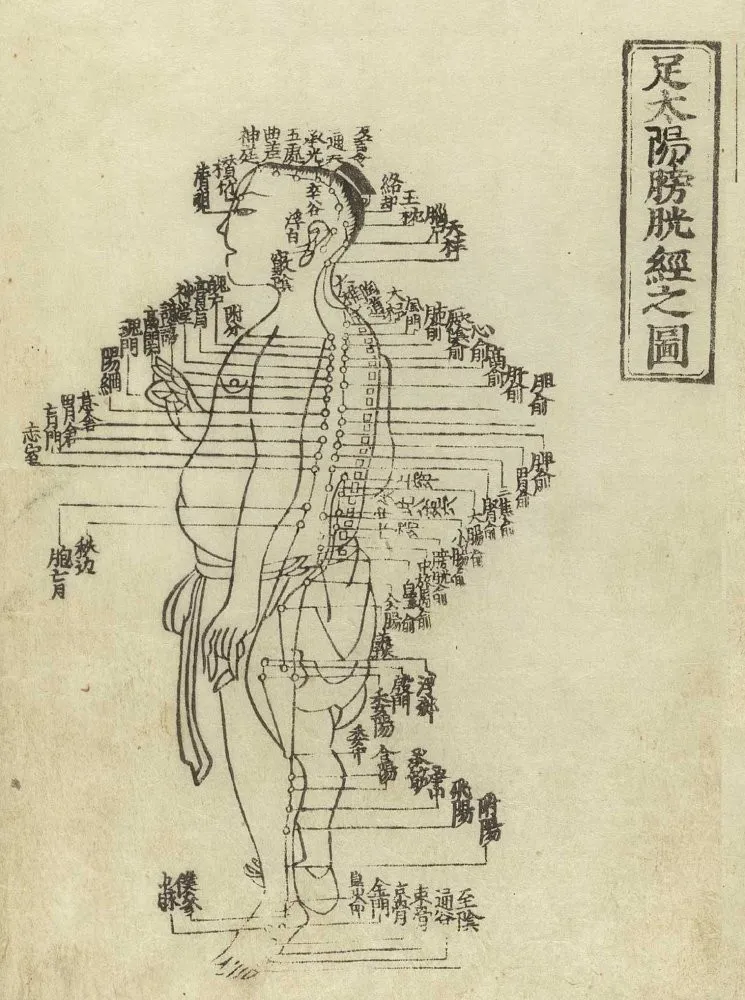 足太陽膀胱經之圖
通天
承光
五處
曲差
神庭
攅竹
睛明
絡却
玉枕
腦戶
天柱
率谷
浮白
竅陰
大杼
風門
肺俞
厥陰俞
心俞
膈俞
肝俞
胆俞
脾俞
胃俞
三焦俞
腎俞
大腸俞
小腸俞
膀胱俞
中膂俞
陶道
附分
魄戶
膏肓
神堂
譩譆
膈關
魂門
陽綱
意舍
胃倉
肓門
志室
胞肓
秩边
殷門
浮郄
委陽
委中
合陽
承筋
承山
飛陽
附陽
申脉
僕參
金門
京骨
束骨
通谷
至陰